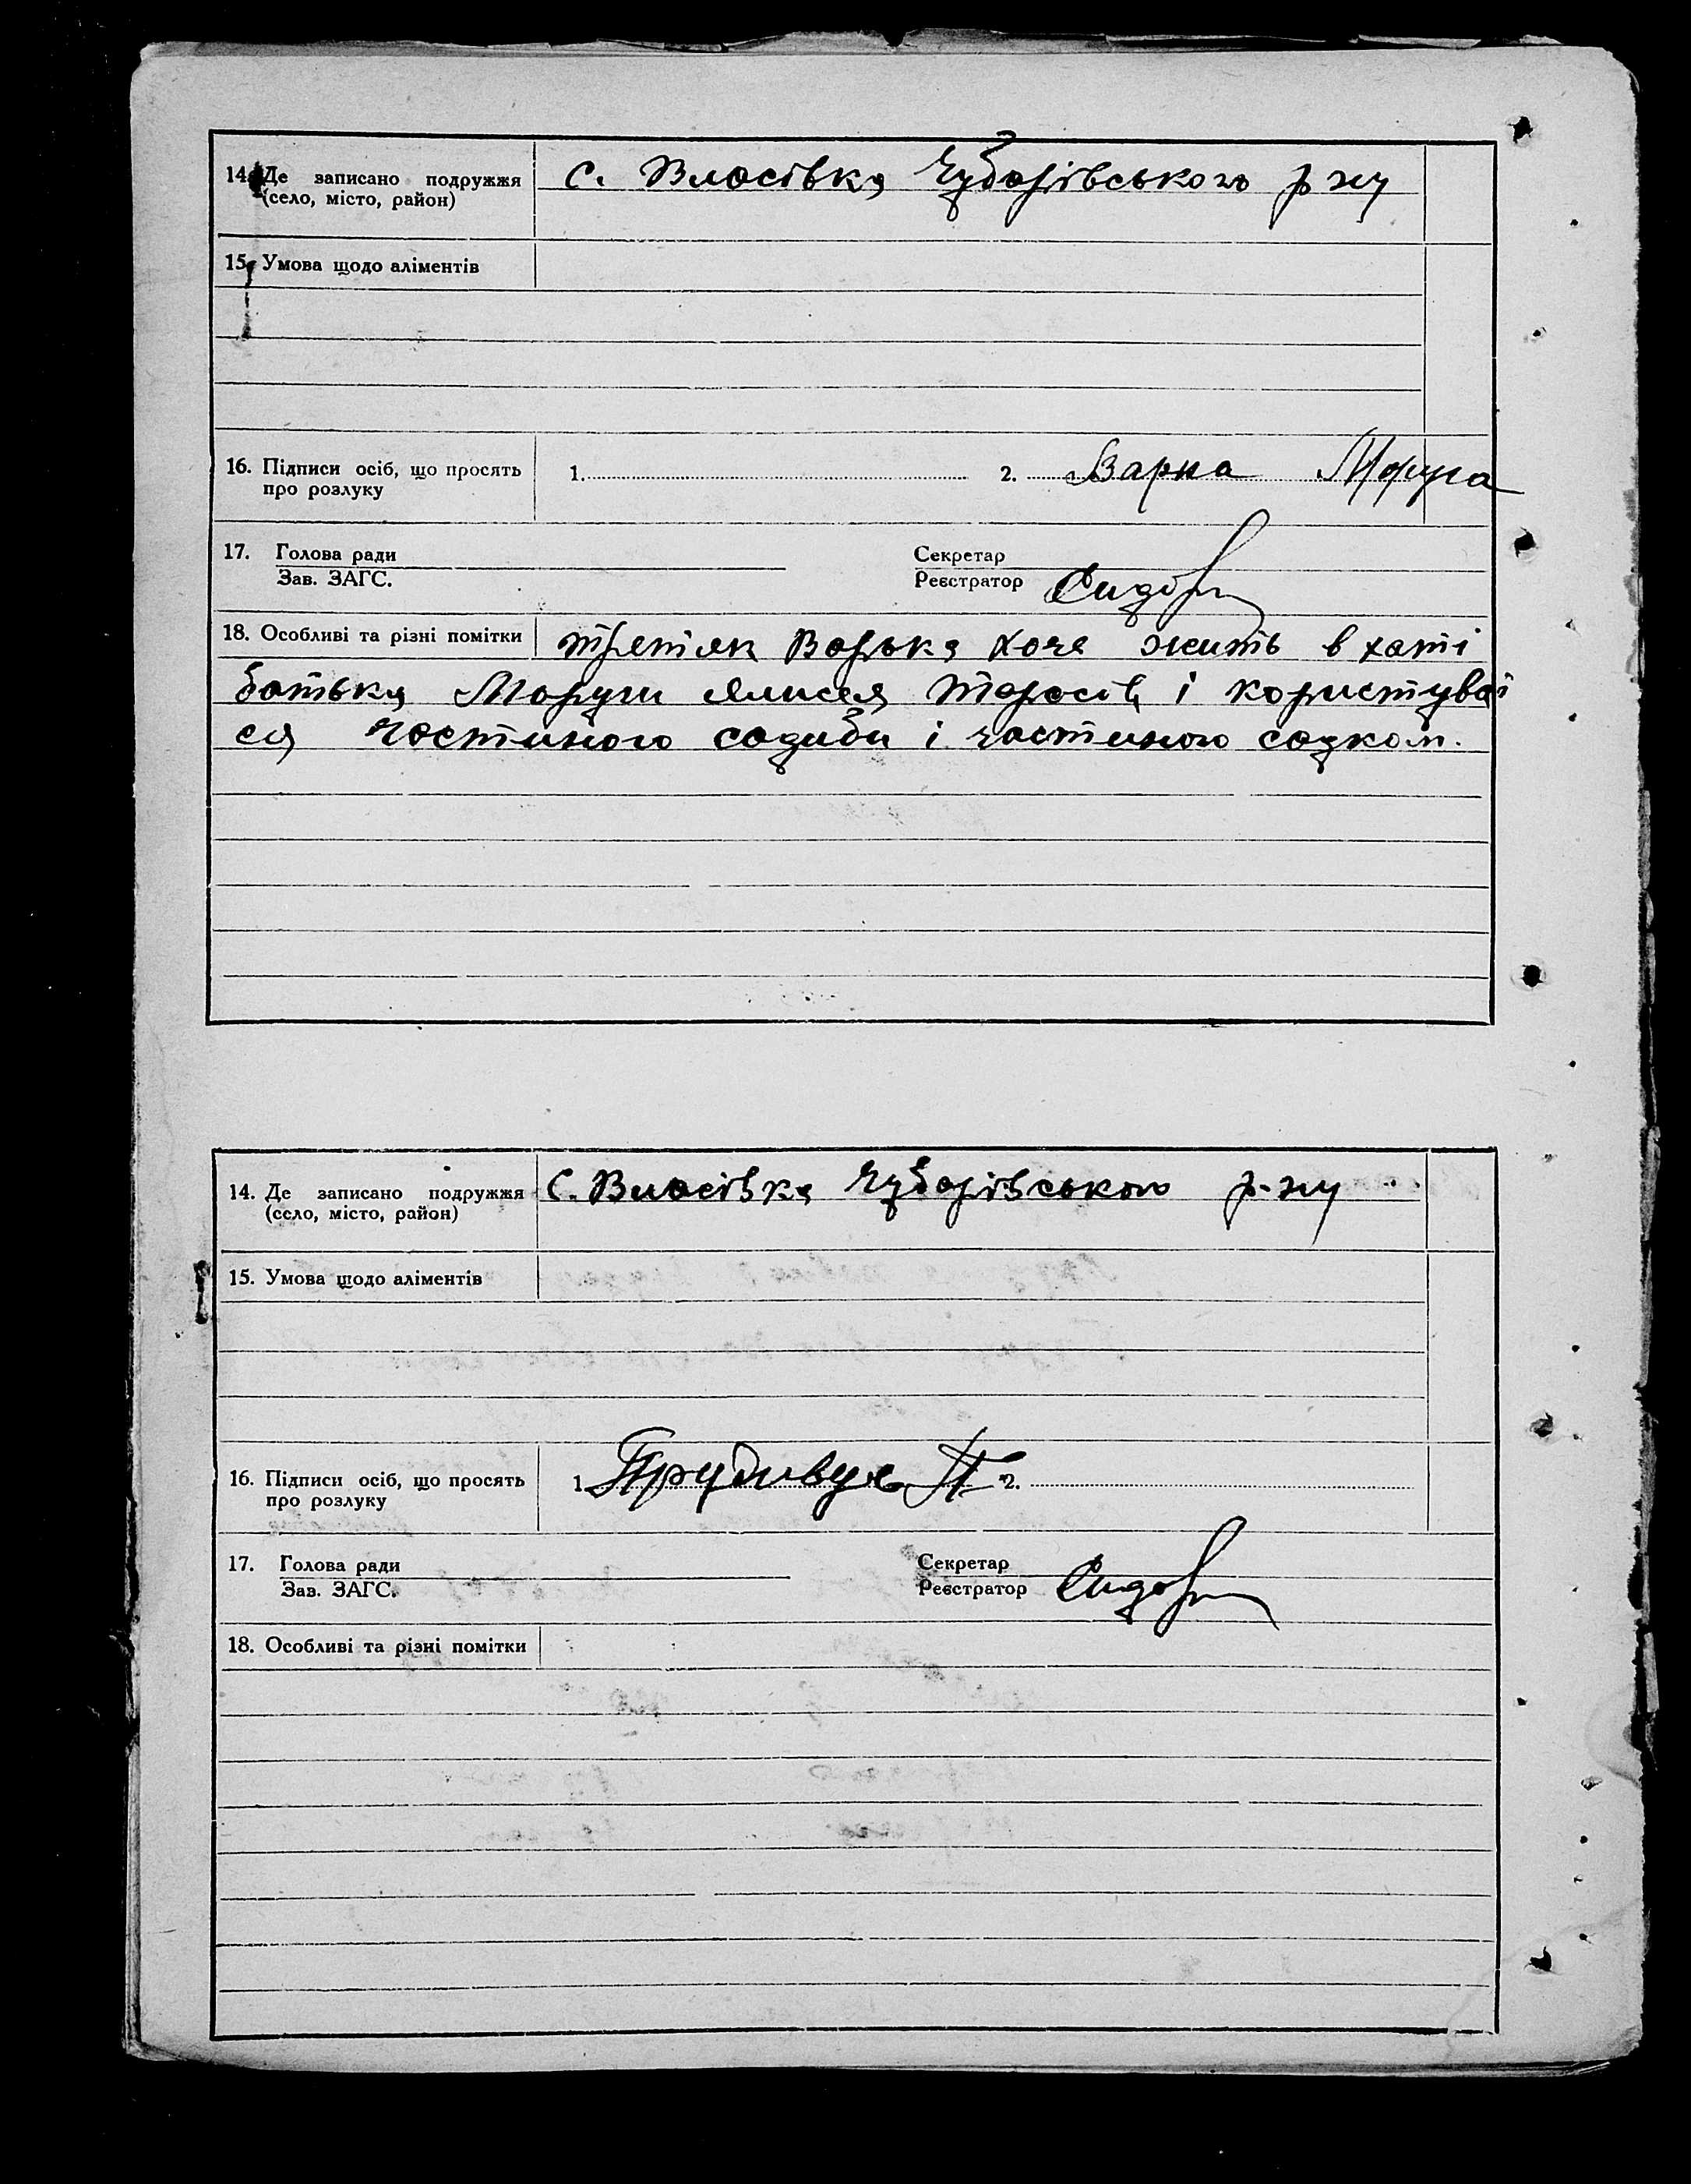 14. Де записано подружжя с. Власівка Чубарівського р ну
(село, місто, район)
15. Умова щодо аліментів
16. Підписи осіб, що просять 1. 2. Варка Моруга
про розлуку
17. Голова ради Секретар
Зав. ЗАГС. Реєстратор Сидор
18. Особливі та різні помітки Третяк Варька хоче жить в хаті
батька Моруги Тарасів і користуват
ся частиною садиби і частиною садком.
14. Де записано подружжя С. Власівка Чубарівського р-ну
(село, місто, район)
15. Умова щодо аліментів
16. Підписи осіб, що просять 1. 2.
про розлуку
17. Голова ради Секретар
Зав. ЗАГС. Реєстратор Сидор
18. Особливі та різні помітки